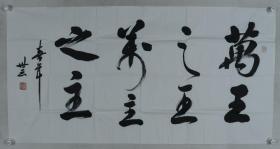 萬王
之王
萬主
之主